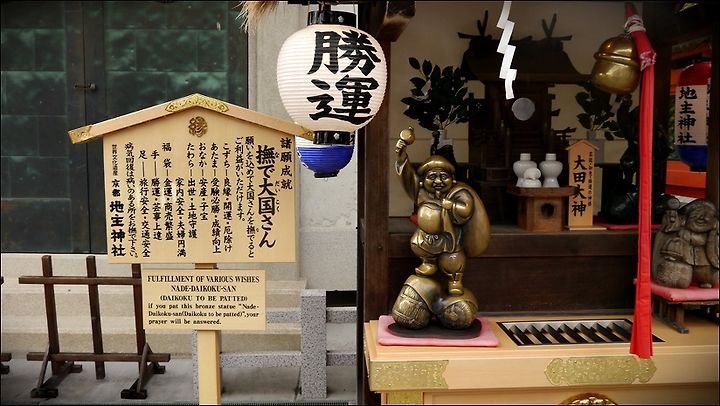 諸願成就
撫で大国さん
なでだいこく
願いを込めて大国さんを撫でると
ご利益をいただけます。
こずち―良縁・開運・厄除け
あたま―受験必勝・成績向上
おなか―安産・子宝
たわら―出世・土地守護
家内安全・夫婦円満
福袋―金運・商売繁盛
手―勝運・芸事上達
足―旅行安全・交通安全
病気回復は病いのある所をお撫で下さい。
世界文化遺産
京都 地主神社
FULFILLMENT OF VARIOUS WISHES
NADE-DAIKOKU-SAN
(DAIKOKU TO BE PATTED)
if you pat this bronze statue "Nade-
Daikoku-san(Daikoku to be patted)",your
prayer will be answered.
勝運
大田大神
地主神社